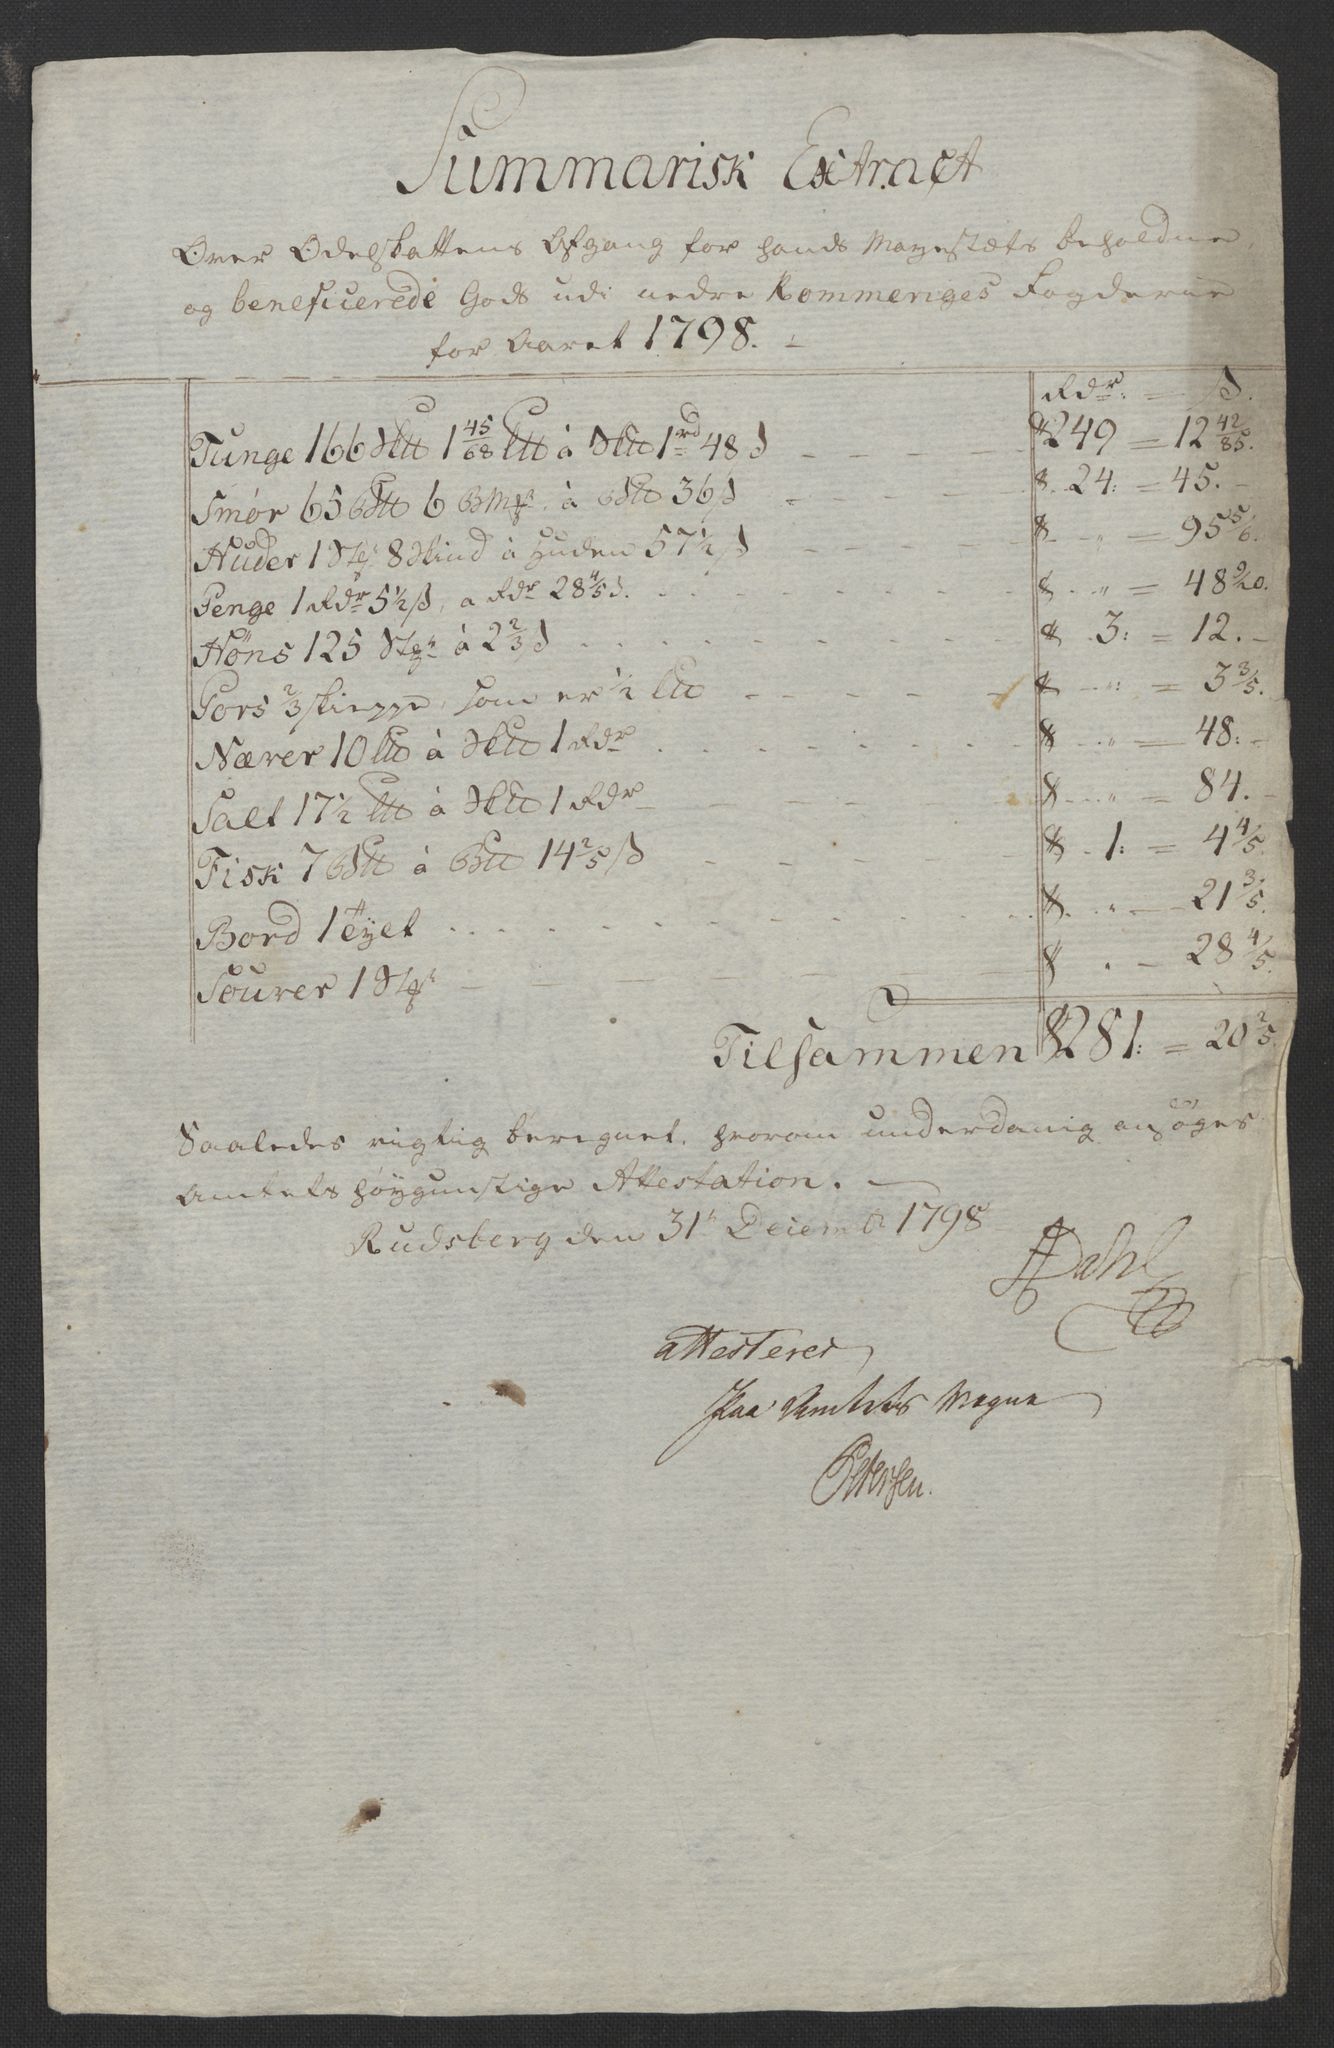 Summarisk Extract
Over Odelskattens Afgang for hands Mayestæts beholdne
og beneficerede Gods udi nedre Rommeriges Fogderie
for Aaret 1798. -
Rdr: = ß.
Tunge 166 Sktt 1 45/68 Ltt à Sktt 1rd 48 ß - - - - - $ 249 = 12 42/85.
Smør 65 Bttt 6 Bmrk. à Bttt 36 ß - - - - $. 24: = 45. -
Huder 1 Stk 8 Skind à Huden 57 1/2 ß - - - - - $ - " = 95 5/6.
Penge 1 Rdr 5 1/2 ß, a Rdr 28 4/5 ß. . . . . . . $ . . " = 48 9/20.
Höns 125 Stkr à 2 2/3 ß . . . . . . $ . 3: = 12. -
Pors 2/3 skieppe, som er 1/2 Ltt - - - - - - $ - ": = 3 3/5.
Nærer 10 Ltt à Sktt 1 Rdr . . . . . . . $ . . " = 48: -
Salt 17 1/2 Ltt à Sktt 1 Rdr - - - - - - $ - - " = 84. -
Fisk 7 Bttt à Bttt 14 2/5 ß - - - - - $ . 1: = 4 4/5.
Bord 1 Tÿet . . . . . . . . . $. . " - 21 3/5.
Sourer 1 Stk - - - - - - - $ . - 28 4/5.
Tilsammen $ 281: = 20 2/5.
Saaledes rigtig beregnet, hvorom underdanig ansöges
Amtets höÿgunstige Attestation. -
Rudsberg den 31t Decembr 1798
Dahl
attesteres
Paa Amtets Vegne
Petersen.